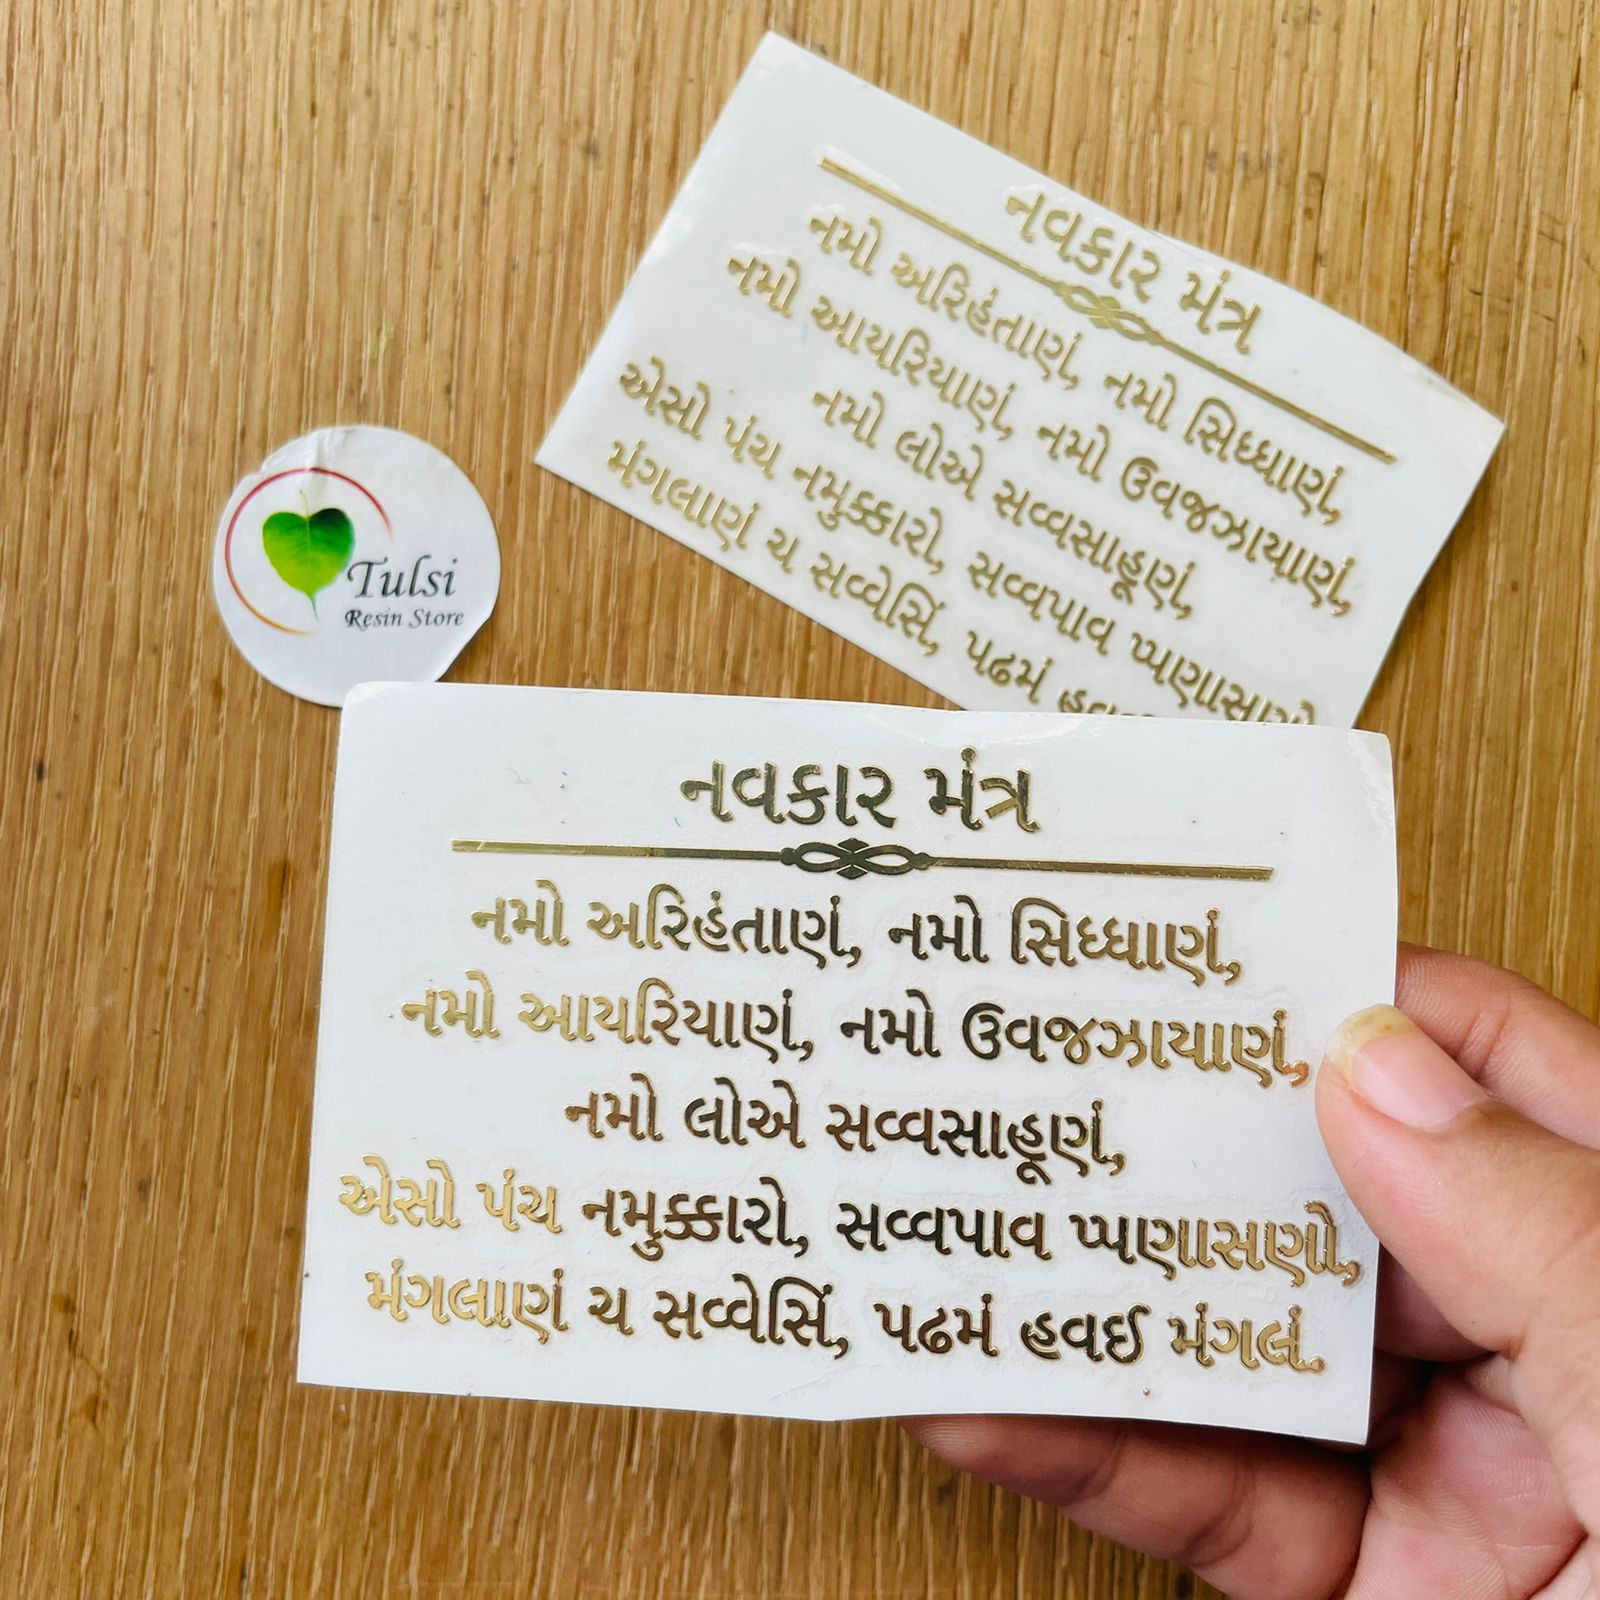 નવકાર મંત્ર
નમો અરિહંતાણં, નમો સિધ્ધાણં,
નમો આયરિયાણં, નમો ઉવજઝાયાણં,
નમો લોએ સવ્વસાહૂણં,
એસો પંચ નમુક્કારો, સવ્વપાવ પ્પણાસણો
મંગલાણં ચ સવ્વેસિં, પઢમં
Tulsi
Resin Store
નવકાર મંત્ર
નમો અરિહંતાણં, નમો સિધ્ધાણં,
નમો આયરિયાણં, નમો ઉવજઝાયાણં,
નમો લોએ સવ્વસાહૂણં,
એસો પંચ નમુક્કારો, સવ્વપાવ પ્પણાસણો,
મંગલાણં ચ સવ્વેસિં, પઢમં હવઈ મંગલં.